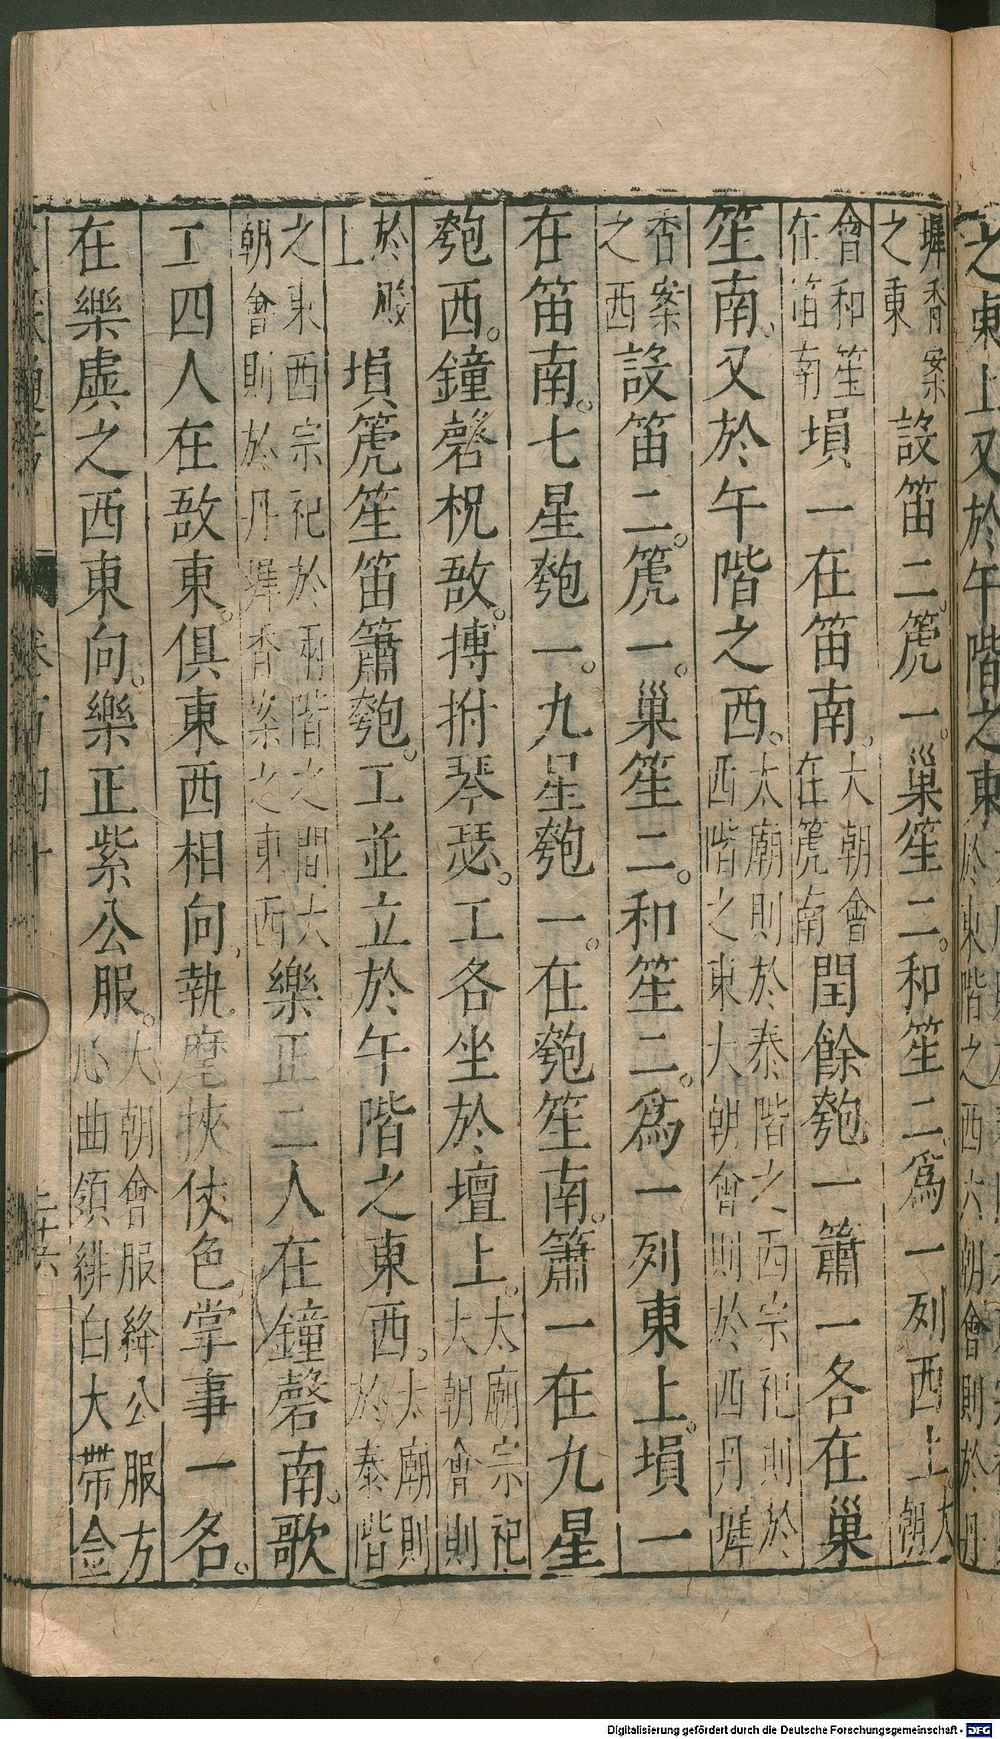 之東上又於午階之東於東階之西大朝會則於丹
墀香案之東設笛二。篪一。巢笙二。和笙二。為一列西上。大朝
會和笙在笛南塤一在笛南。大朝會在篪南閏餘匏一簫一各在巢
笙南。又於午階之西。太廟則於泰階之西宗祀則於西階之東大朝會則於西丹墀
香案之西設笛二。篪一。巢笙二。和笙二。為一列東上。塤一
在笛南。七星匏一。九星匏一。在匏笙南。簫一在九星
匏西。鐘磬柷敔。搏拊琴瑟。工各坐於壇上。太廟宗祀大朝會則
於殿上塤篪笙笛簫匏。工並立於午階之東西。太廟則於泰階
之東西宗祀於兩階之間大朝會則於丹墀香案之東西樂正二人在鐘磬南。歌
工四人在敔東。俱東西相向。執麾挾仗色掌事一名。
在樂虡之西東向。樂正紫公服。大朝會服絳公服方心曲領緋白大帶金
卷百四十 三十六
Digitalisierung gefördert durch die Deutsche Forschungsgemeinschaft - DFG